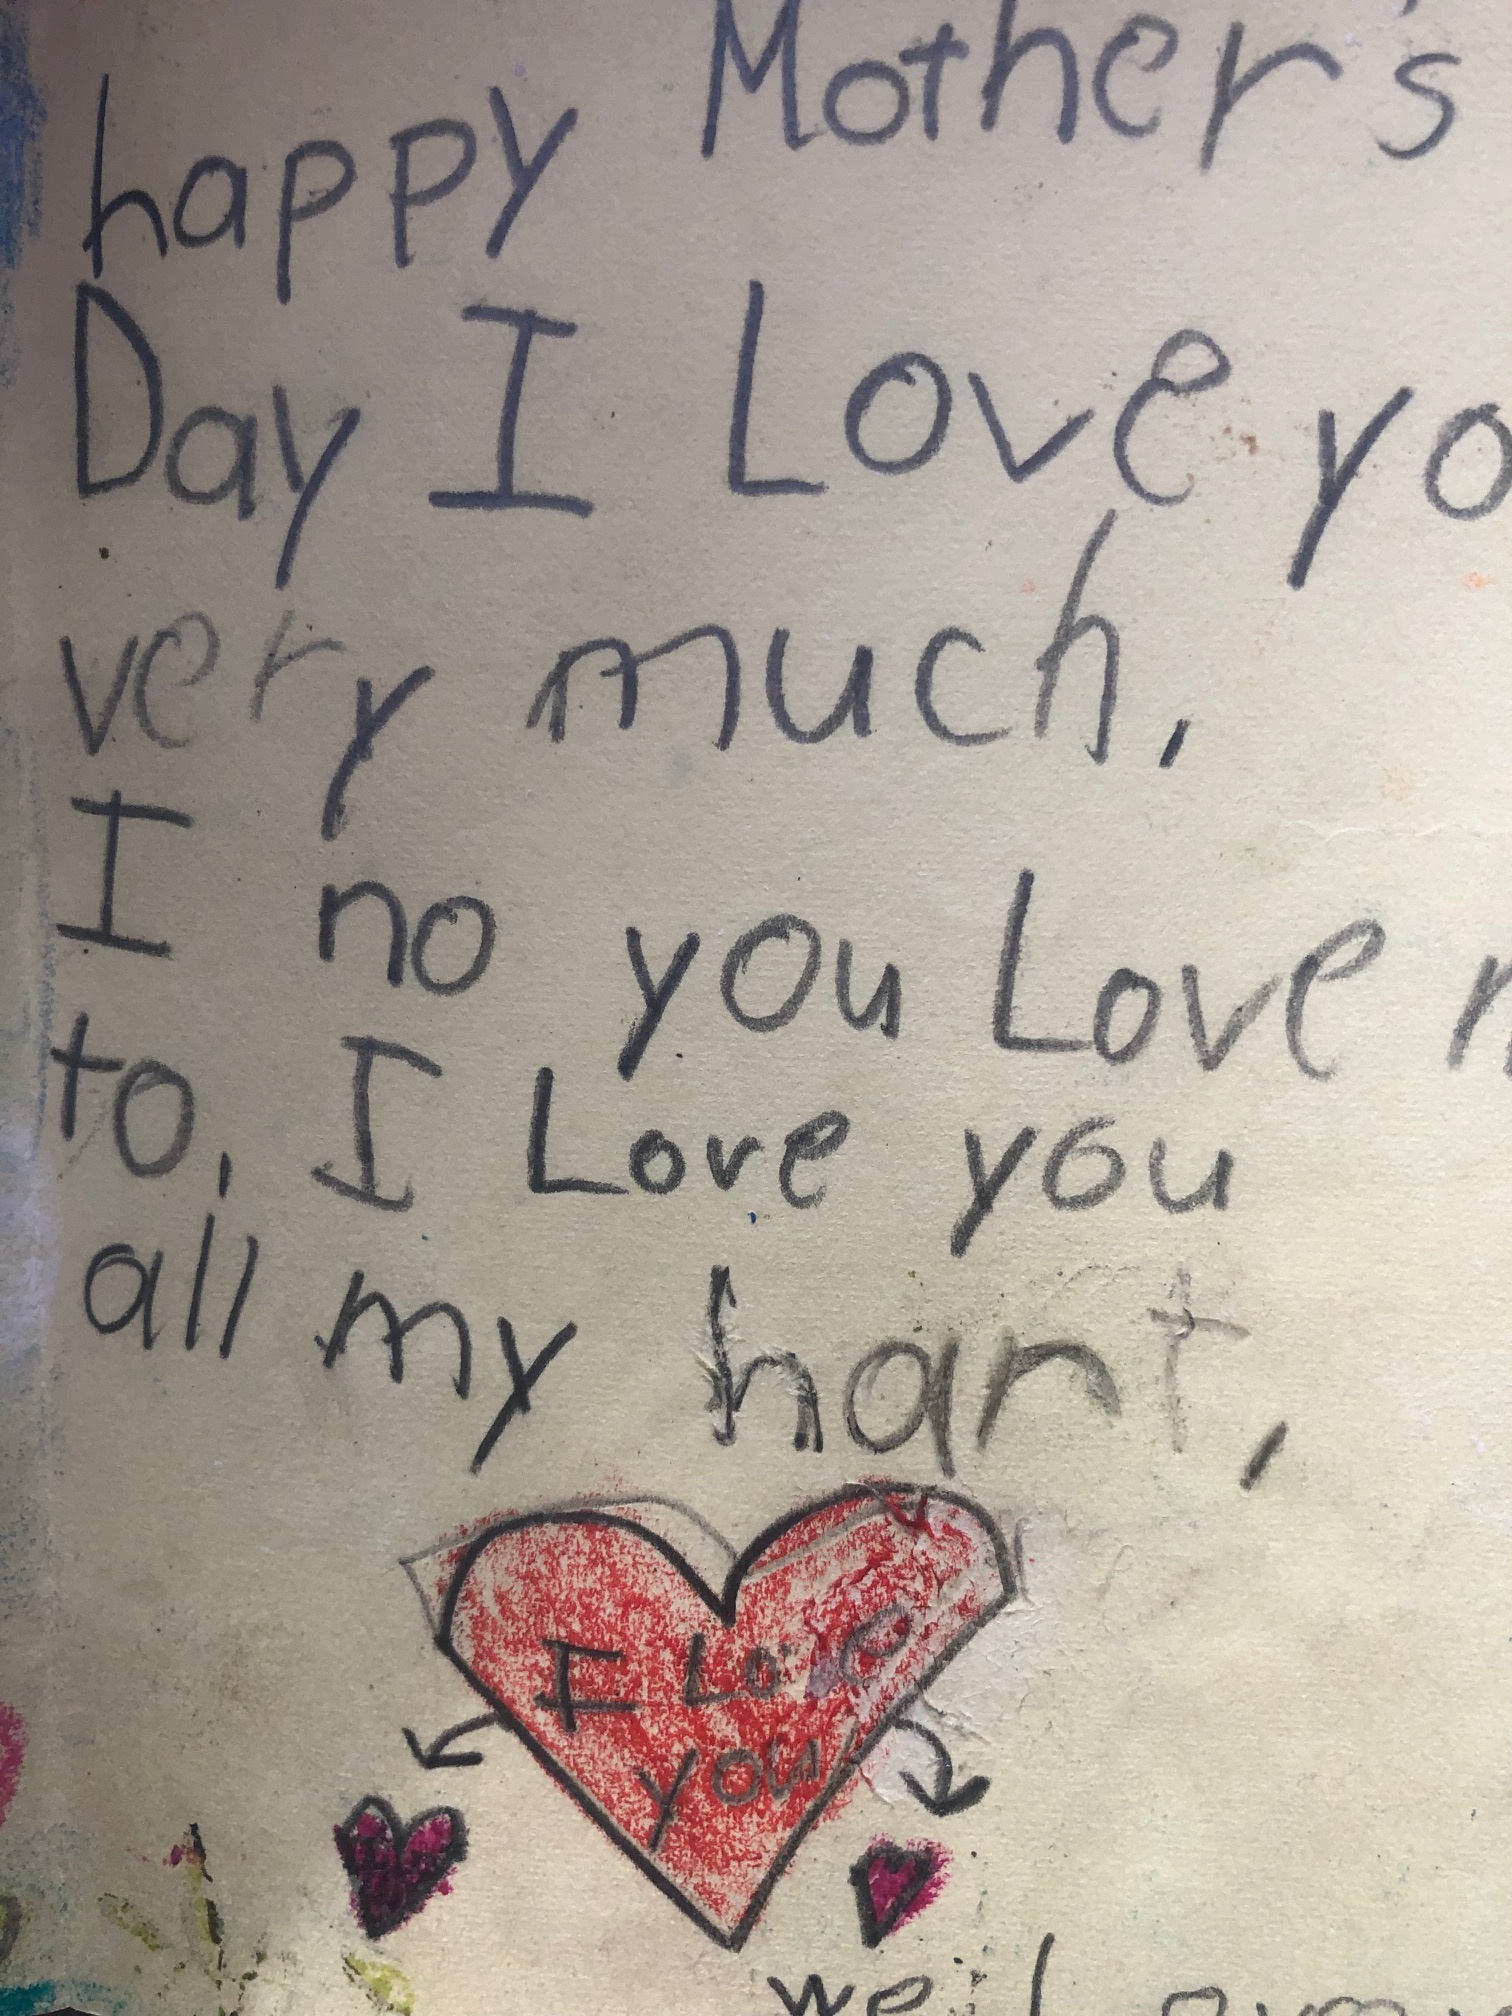 happy Mother's
Day I Love yo
very much,
I no you Love
to, I Love you
all my hart,
I Love
you